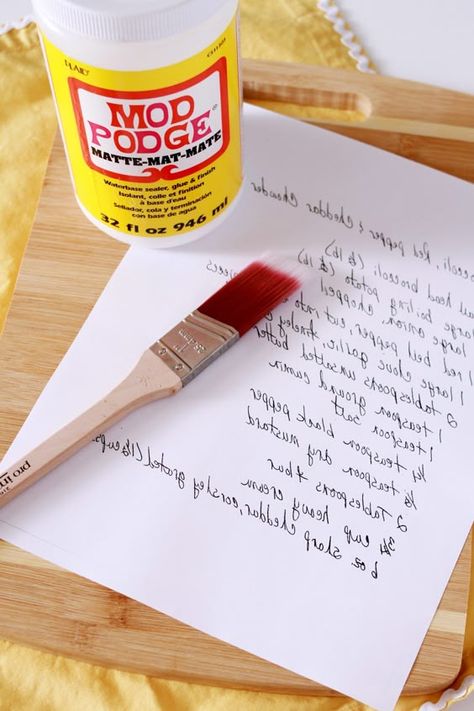 PLAID
CS11303
MOD
PODGE
MATTE-MAT-MATE
Waterbase sealer, glue & finish
Isolant, colle et finition
à base d'eau
Sellador, cola y terminación
con base de agua
32 fl oz 946 ml
Red pepper & Cheddar Chowder
head broccoli (½ lb)
large boiling potato (½ lb)
large onion, chopped
1 red bell pepper, cut into pieces
1 large clove garlic, finely
2 tablespoons unsalted butter
1 teaspoon ground cumin
1 teaspoon salt
¼ teaspoon black pepper
1 teaspoon dry mustard
2 Tablespoons flour
¾ cup heavy cream
6 oz sharp Cheddar, coarsley grated (1½ cups